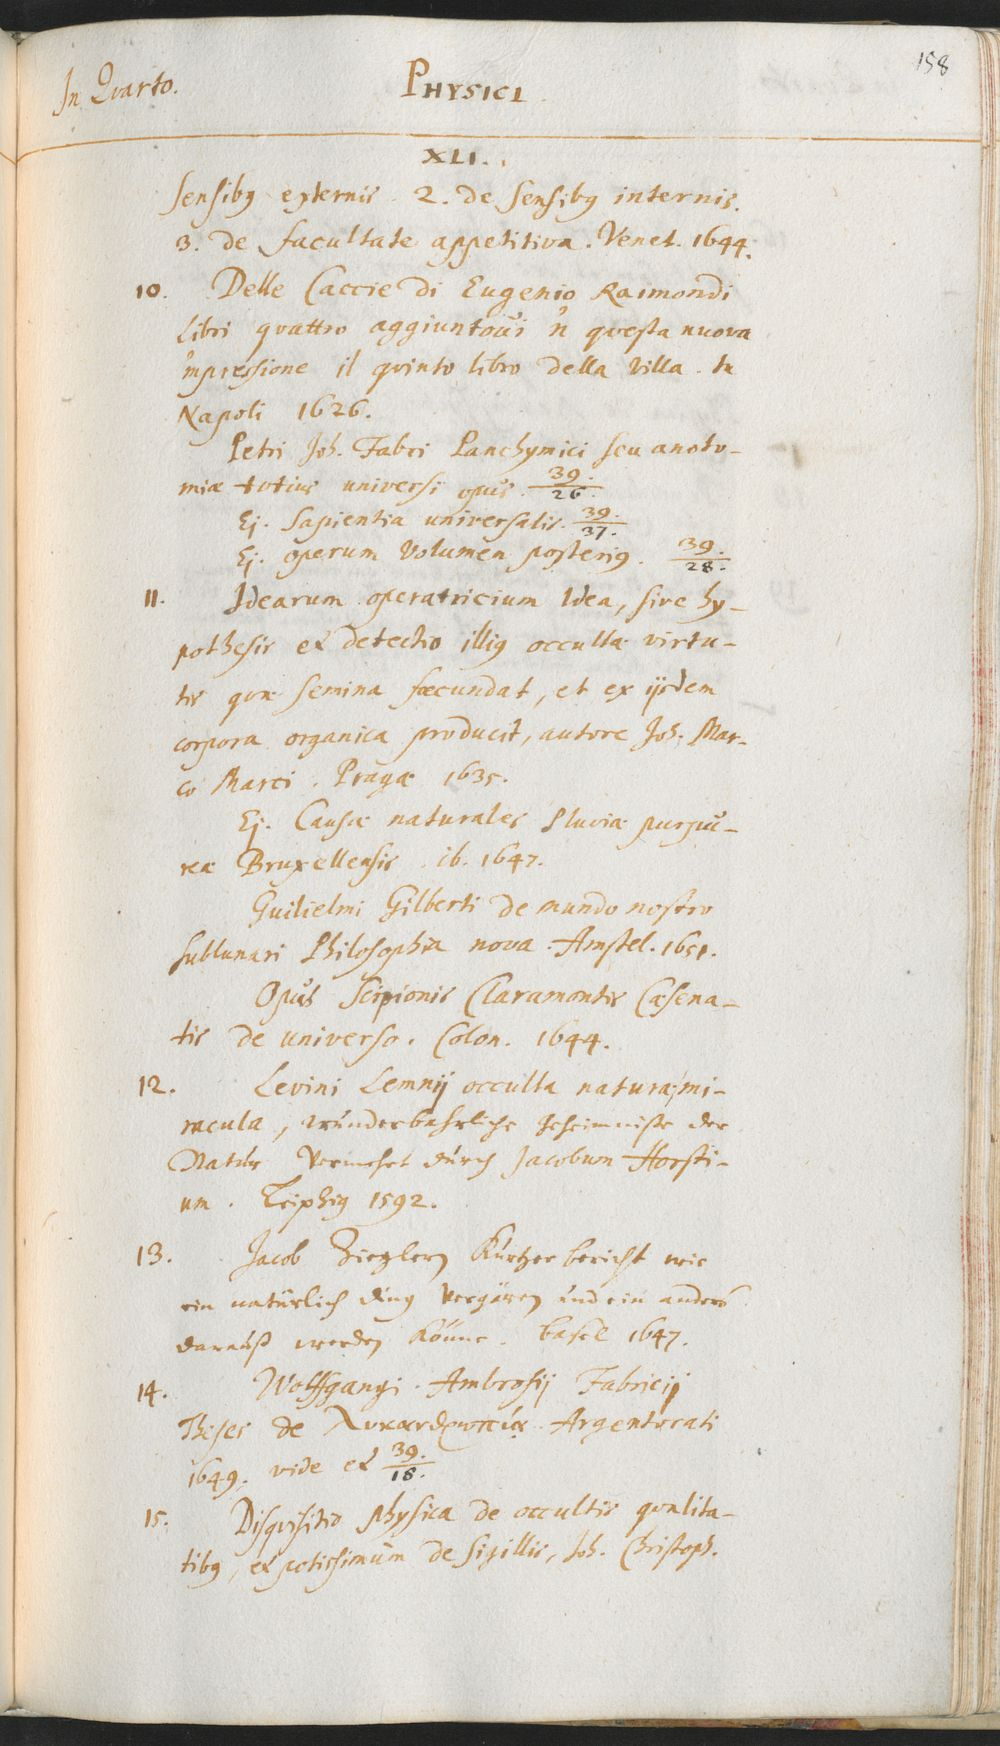 158
In Qvarto. PHYSICI
XLI.
sensibus externis. 2. de sensibus internis.
3. de facultate appetitiva. Venet. 1644.
10. Delle Caccie di Eugenio Raimondi
libri quattro aggiuntovi 'n questa nuova
'mpressione il quinto libro della Villa. In
Napoli 1626.
Petri Joh. Fabri Panchymici seu anoto-
miæ totius universi opus. 39./26.
Ej. Sapientia universalis. 39./37.
Ej. operum Volumen posterius. 39./28.
11. Idearum operatricium Idea, sive hy-
pothesis et detectio illius occultæ virtu-
tis quæ semina fœcundat, et ex ijsdem
corpora organica producit, autore Joh. Mar-
co Marci. Pragæ 1635.
Ej. Causæ naturales pluviæ purpu-
reæ Bruxellensis. ib. 1647.
Guilielmi Gilberti de mundo nostro
sublunari Philosophia nova. Amstel. 1651.
Opus Scipionis Claramontis Cæsena-
tis de universo. Colon. 1644.
12. Levini Lemnij occulta naturæ mi-
racula, wunderbahrliche geheimniße der
Natur vermehrt durch Jacobum Horsti-
um. Leipzig 1592.
13. Jacob Zieglers Kurtzer bericht wie
ein natürlich ding vergären und ein anders
darauß werden könne. Basel 1647.
14. Wolffgangi Ambrosij Fabricij
Theses de Λυκανθρωπίᾳ. Argentorati
1649. vide et 39./18.
15. Disquisitio physica de occultis qualita-
tibus, et potissimum de sigillis, Joh. Christoph.